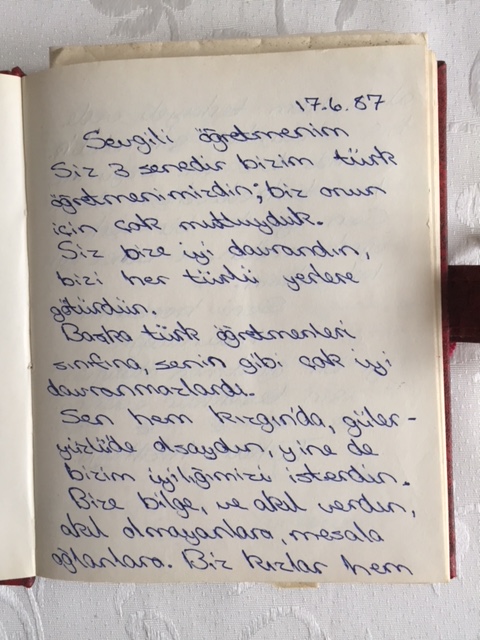 17.6.87
Sevgili öğretmenim
Siz 3 senedir bizim türk
öğretmenimizdin; biz onun
için çok mutluyduk.
Siz bize iyi davrandın,
bizi her türlü yerlere
götürdün.
Başka türk öğretmenleri
sınfına, senin gibi çok iyi
davranmazlardı.
Sen hem kızgın'da, güler-
yüzlü'de olsaydın, yine de
bizim iyiliğimizi isterdin.
Bize bilge, ve akıl verdin,
akıl olmayanlara, mesala
oğlanlara. Biz kızlar hem